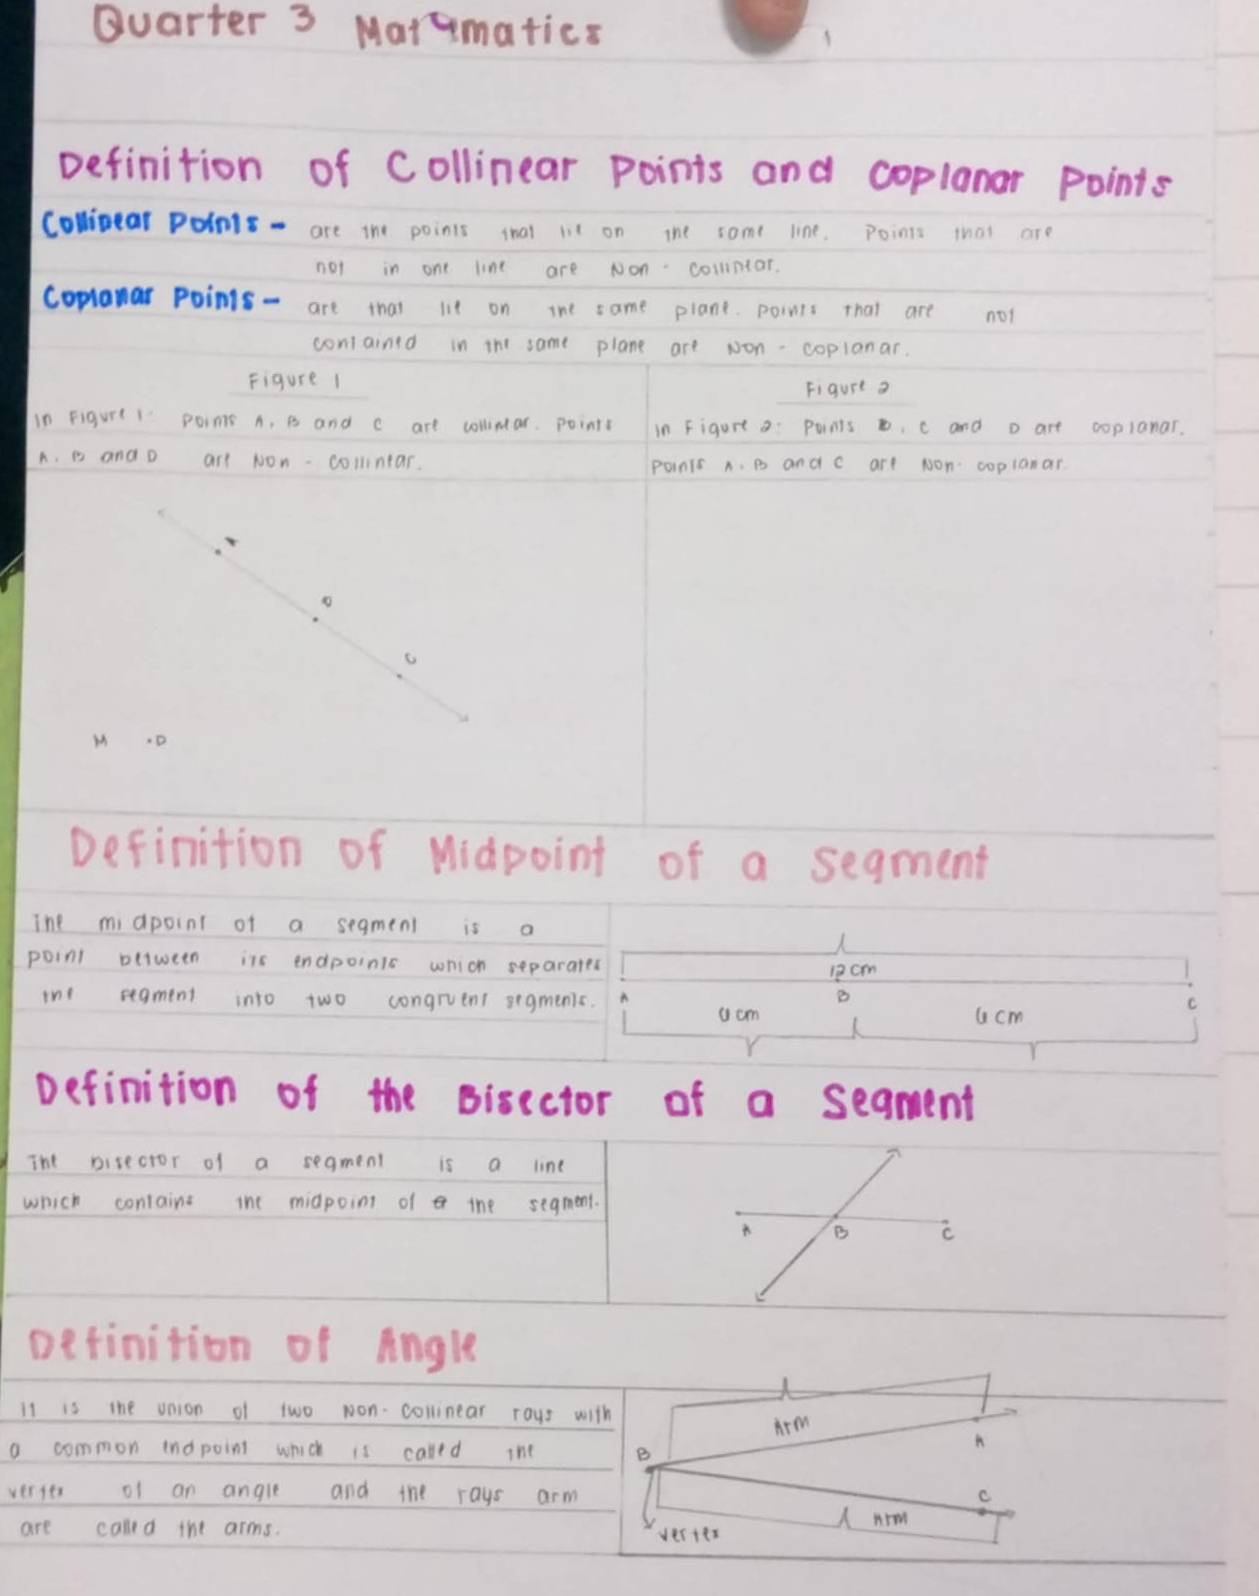 Quarter 3 Mathematics
Definition of Collinear Points and Coplanar Points
Collinear Points - are the points that lie on the same line. Points that are
not in one line are Non-collinear.
Coplanar Points - are that lie on the same plane. Points that are not
contained in the same plane are Non-coplanar.
Figure 1
In Figure 1: Points A, B and C are collinear. Points
A, B and D are Non-collinear.
Figure 2
In Figure 2: Points B, C and D are coplanar.
Points A, B and C are Non-coplanar.
A
B
C
M .D
Definition of Midpoint of a Segment
The midpoint of a segment is a
point between its endpoints which separates
the segment into two congruent segments.
12 cm
A B C
6 cm 6 cm
Definition of the Bisector of a Segment
The bisector of a segment is a line
which contains the midpoint of the segment.
A B C
Definition of Angle
It is the union of two Non-collinear rays with
a common endpoint which is called the
vertex of an angle and the rays arm
are called the arms.
Arm
A
B
C
Arm
vertex